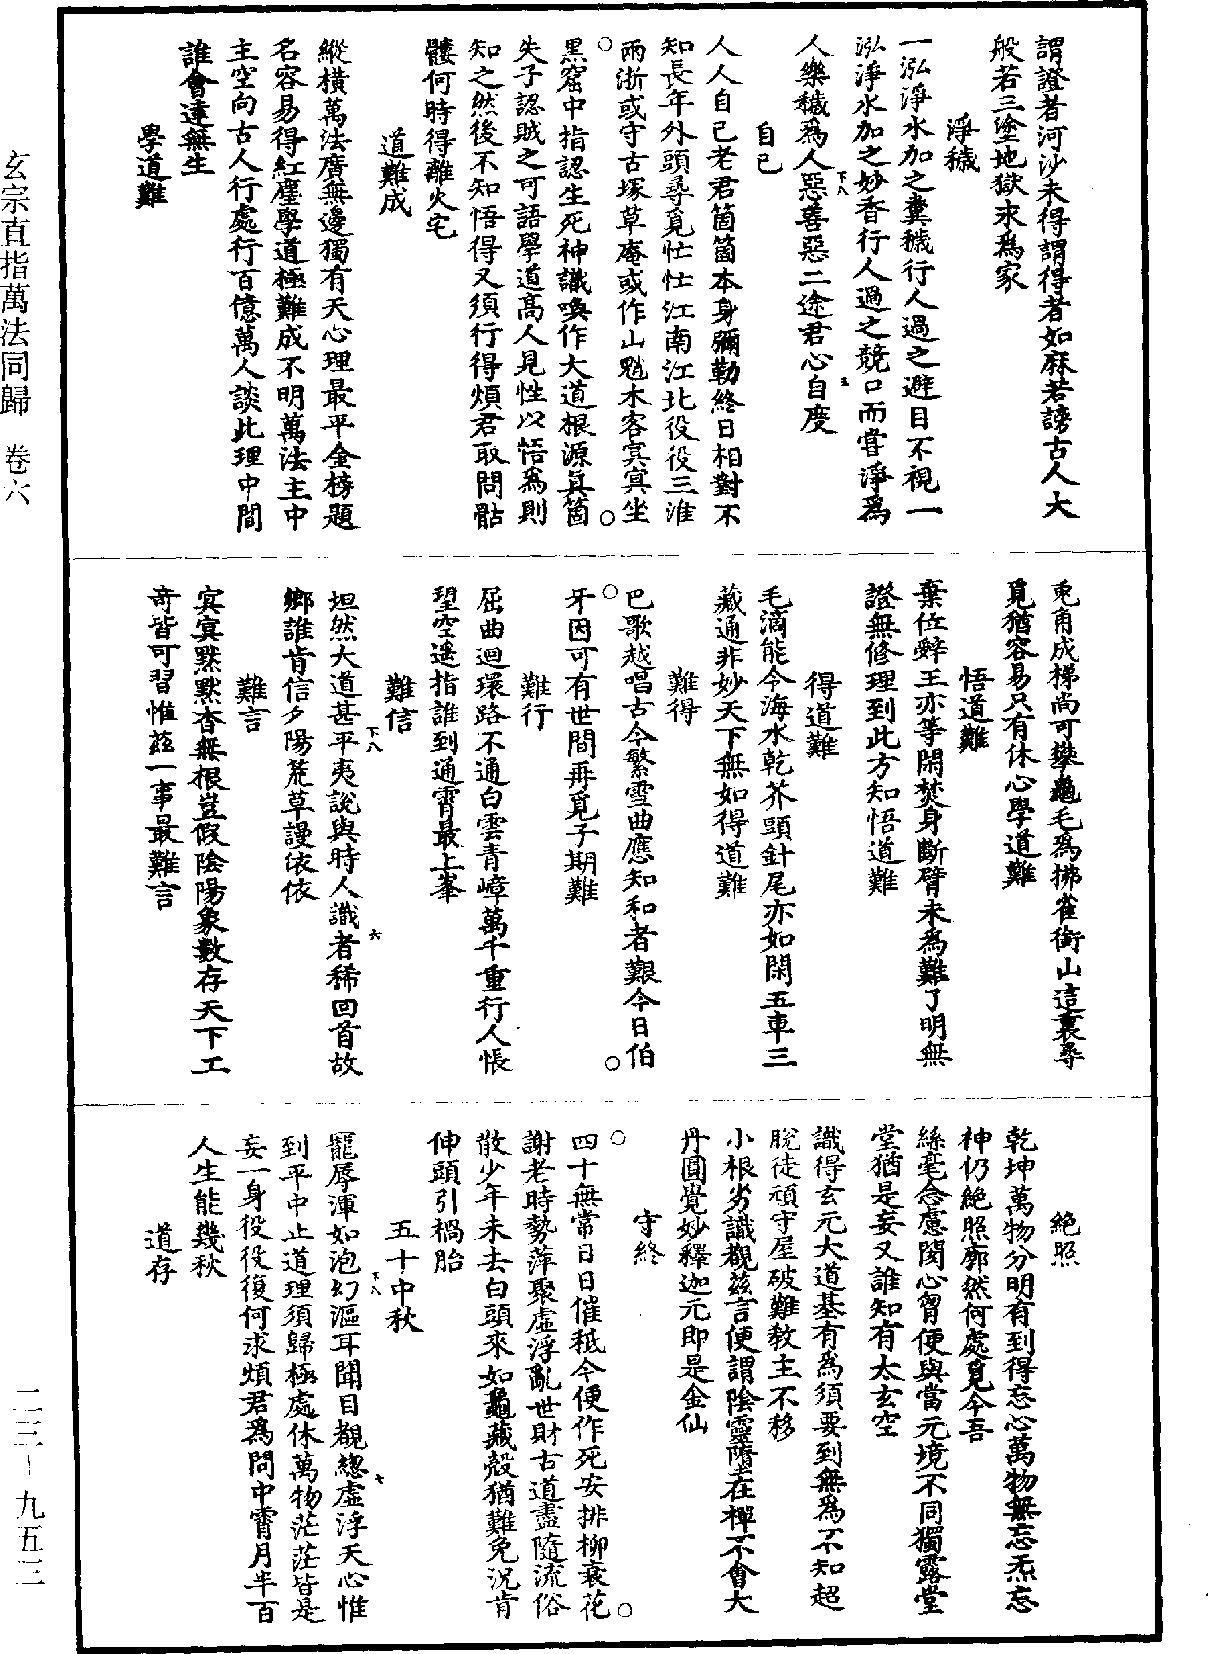 謂證者河沙未得謂得者如麻若謗古人大
般若三塗地獄求爲家
淨穢
一泓淨水加之糞穢行人過之避目不視一
泓淨水加之妙香行人過之競口而嘗淨爲
人樂穢爲人惡善惡二途君心自度
下八
五
自己
人人自己老君箇箇本身彌勒終日相對不
知長年外頭尋覓忙忙江南江北役役三淮
兩浙或守古塚草庵或作山魈木客冥冥坐
黑窟中指認生死神識喚作大道根源眞箇
失子認賊之可語學道高人見性以悟爲則
知之然後不知悟得又須行得煩君取問骷
髏何時得離火宅
道難成
縱橫萬法廣無邊獨有天心理最平金榜題
名容易得紅塵學道極難成不明萬法主中
主空向古人行處行百億萬人談此理中間
誰會達無生
學道難
兎角成梯尚可攀龜毛爲拂雀銜山這裏尋
覓猶容易只有休心學道難
悟道難
棄位辭王亦等閑焚身斷臂未爲難了明無
證無修理到此方知悟道難
得道難
毛滴能令海水乾芥頭針尾亦如閑五車三
藏通非妙天下無如得道難
難得
巴歌越唱古今繁雪曲應知和者艱今日伯
牙因可有世間再覓子期難
難行
屈曲迴環路不通白雲青嶂萬千重行人悵
望空遙指誰到通霄最上峯
難信
下八
坦然大道甚平夷說與時人識者稀回首故
六
鄉誰肯信夕陽荒草謾依依
難言
冥冥默默杳無根豈假陰陽象數存天下工
奇皆可習惟茲一事最難言
絕照
乾坤萬物分明有到得忘心萬物無忘炁忘
神仍絕照廓然何處覓今吾
絲毫念慮閡心胷便與當元境不同獨露堂
堂猶是妄又誰知有太玄空
識得玄元大道基有爲須要到無爲不知超
脫徒頑守屋破難教主不移
小根劣識觀茲言便謂陰靈墮在禪不會大
丹圓覺妙釋迦元即是金仙
守終
四十無常日日催秪今便作死安排柳衰花
謝老時勢萍聚虛浮亂世財古道盡隨流俗
散少年未去白頭來如龜藏殼猶難免況肯
伸頭引禍胎
五十中秋
下八
寵辱渾如泡幻漚耳聞目覩緫虛浮天心惟
七
到平中止道理須歸極處休萬物茫茫皆是
妄一身役役復何求煩君爲問中霄月半百
人生能幾秋
道存
玄宗直指萬法同歸 卷六
二三-九五三